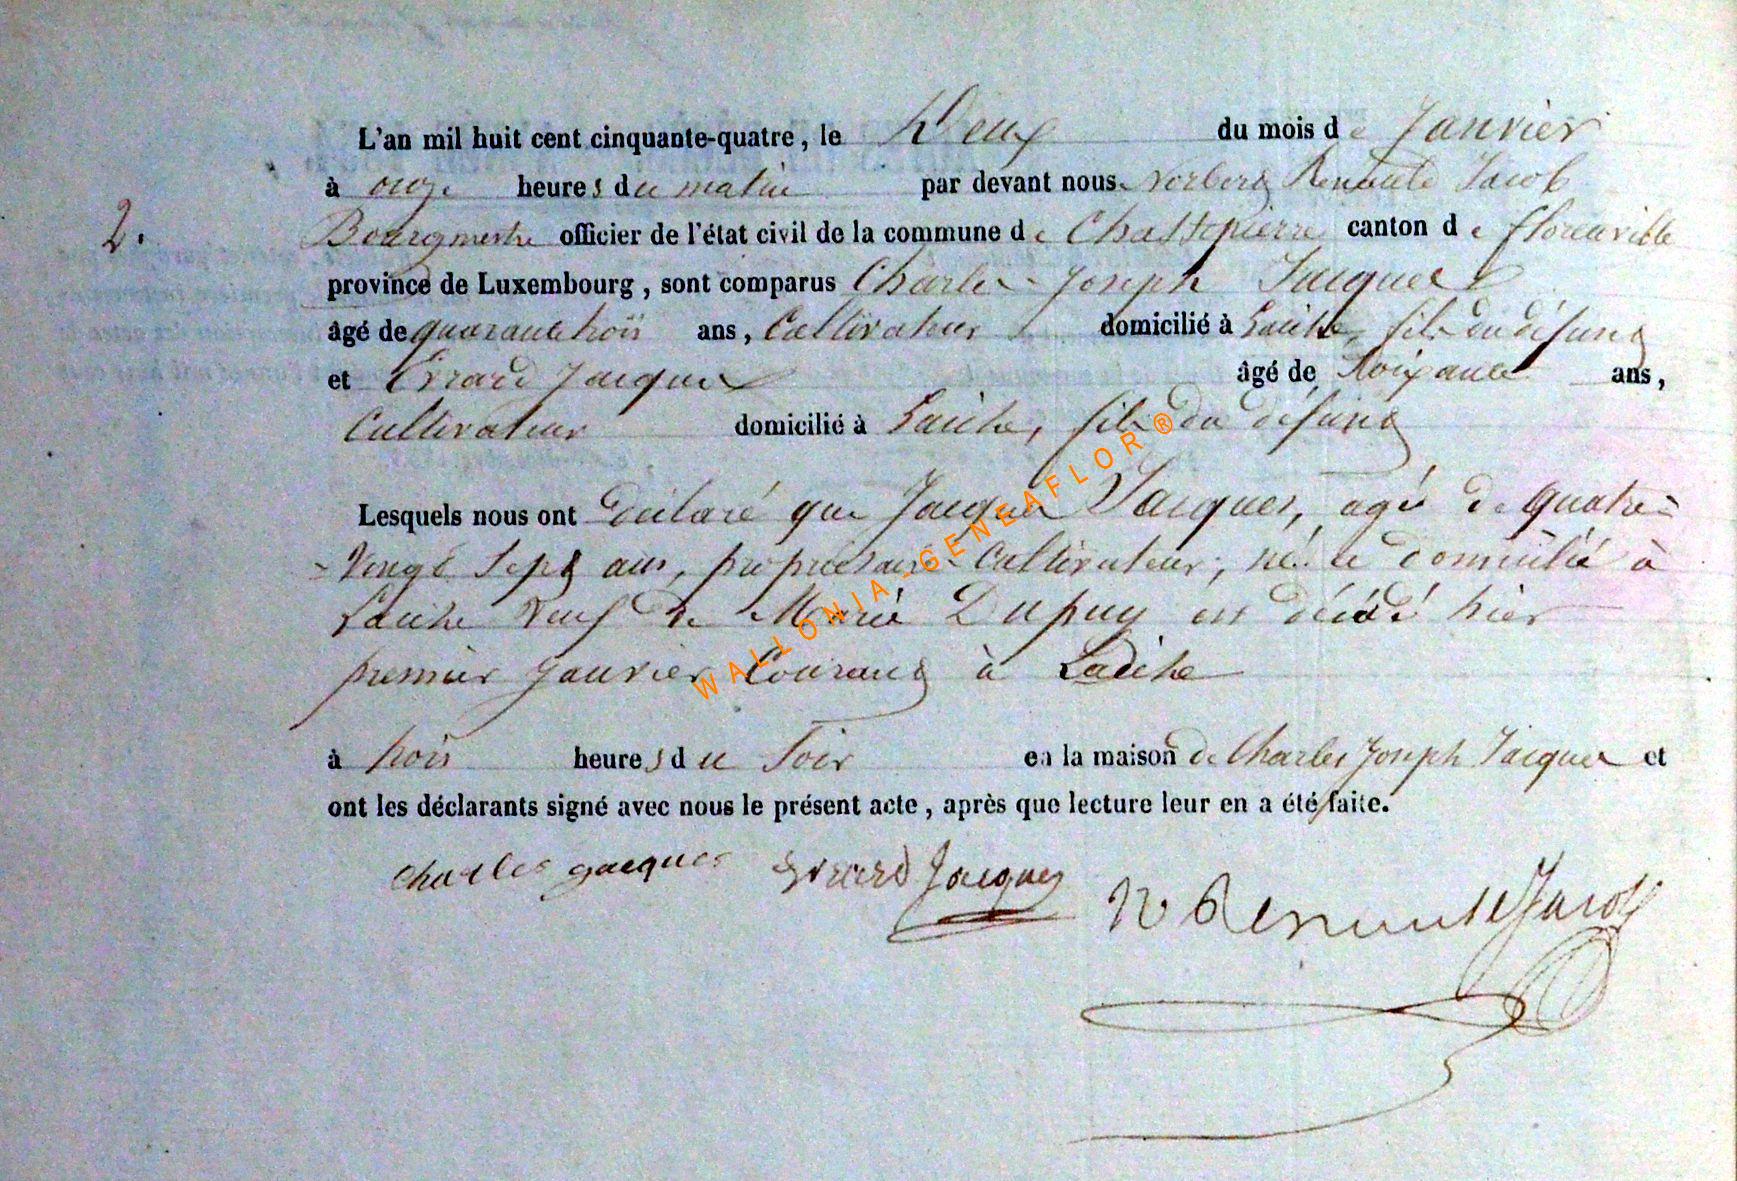 L'an mil huit cent cinquante-quatre, le Deux du mois de Janvier
à onze heures du matin par devant nous Norbert Renauld Jacob
2.
Bourgmestre officier de l'état civil de la commune de Chassepierre canton de florenville
province de Luxembourg, sont comparus Charles Joseph Jacques
âgé de quarante trois ans, Cultivateur domicilié à Laiche, fils du défunt
et Evrard Jacques âgé de Soixante ans,
Cultivateur domicilié à Laiche, fils du défunt
Lesquels nous ont déclaré que Jacques Jacques, agé de quatre=
=Vingt Sept ans, propriétaire Cultivateur, né et domicilié à
Laiche Veuf de Marie Dupuy est décédé hier
premier Janvier Courant à Laiche
à trois heures du Soir en la maison de Charles Joseph Jacques et
ont les déclarants signé avec nous le présent acte, après que lecture leur en a été faite.
Charles Jacques Evrard Jacques N Jacob
WALLONIA-GENEAFLOR®